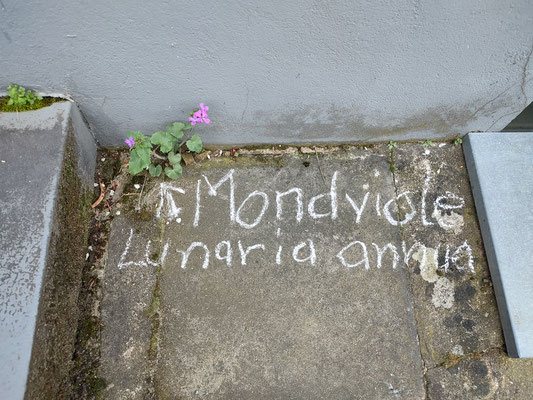 ↑. Mondviole
Lunaria annua